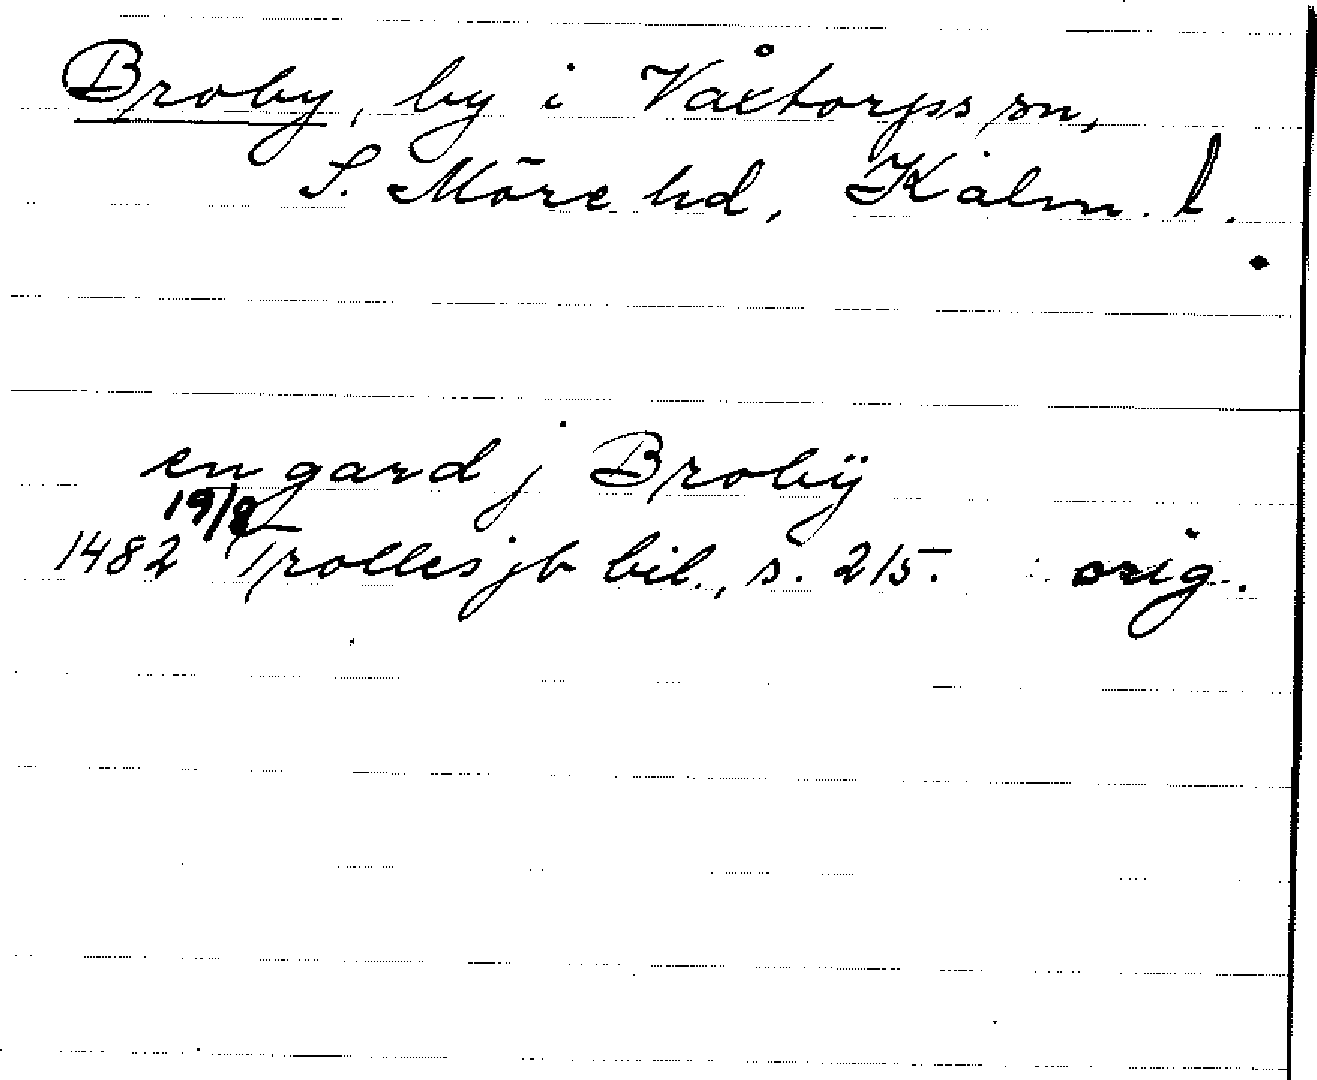 Broby, by i Våxtorps sn,
S. Möre hd, Kalm. l.
en gard j Brobÿ
19/8
1482 Trolles jb bil., s. 215. orig.